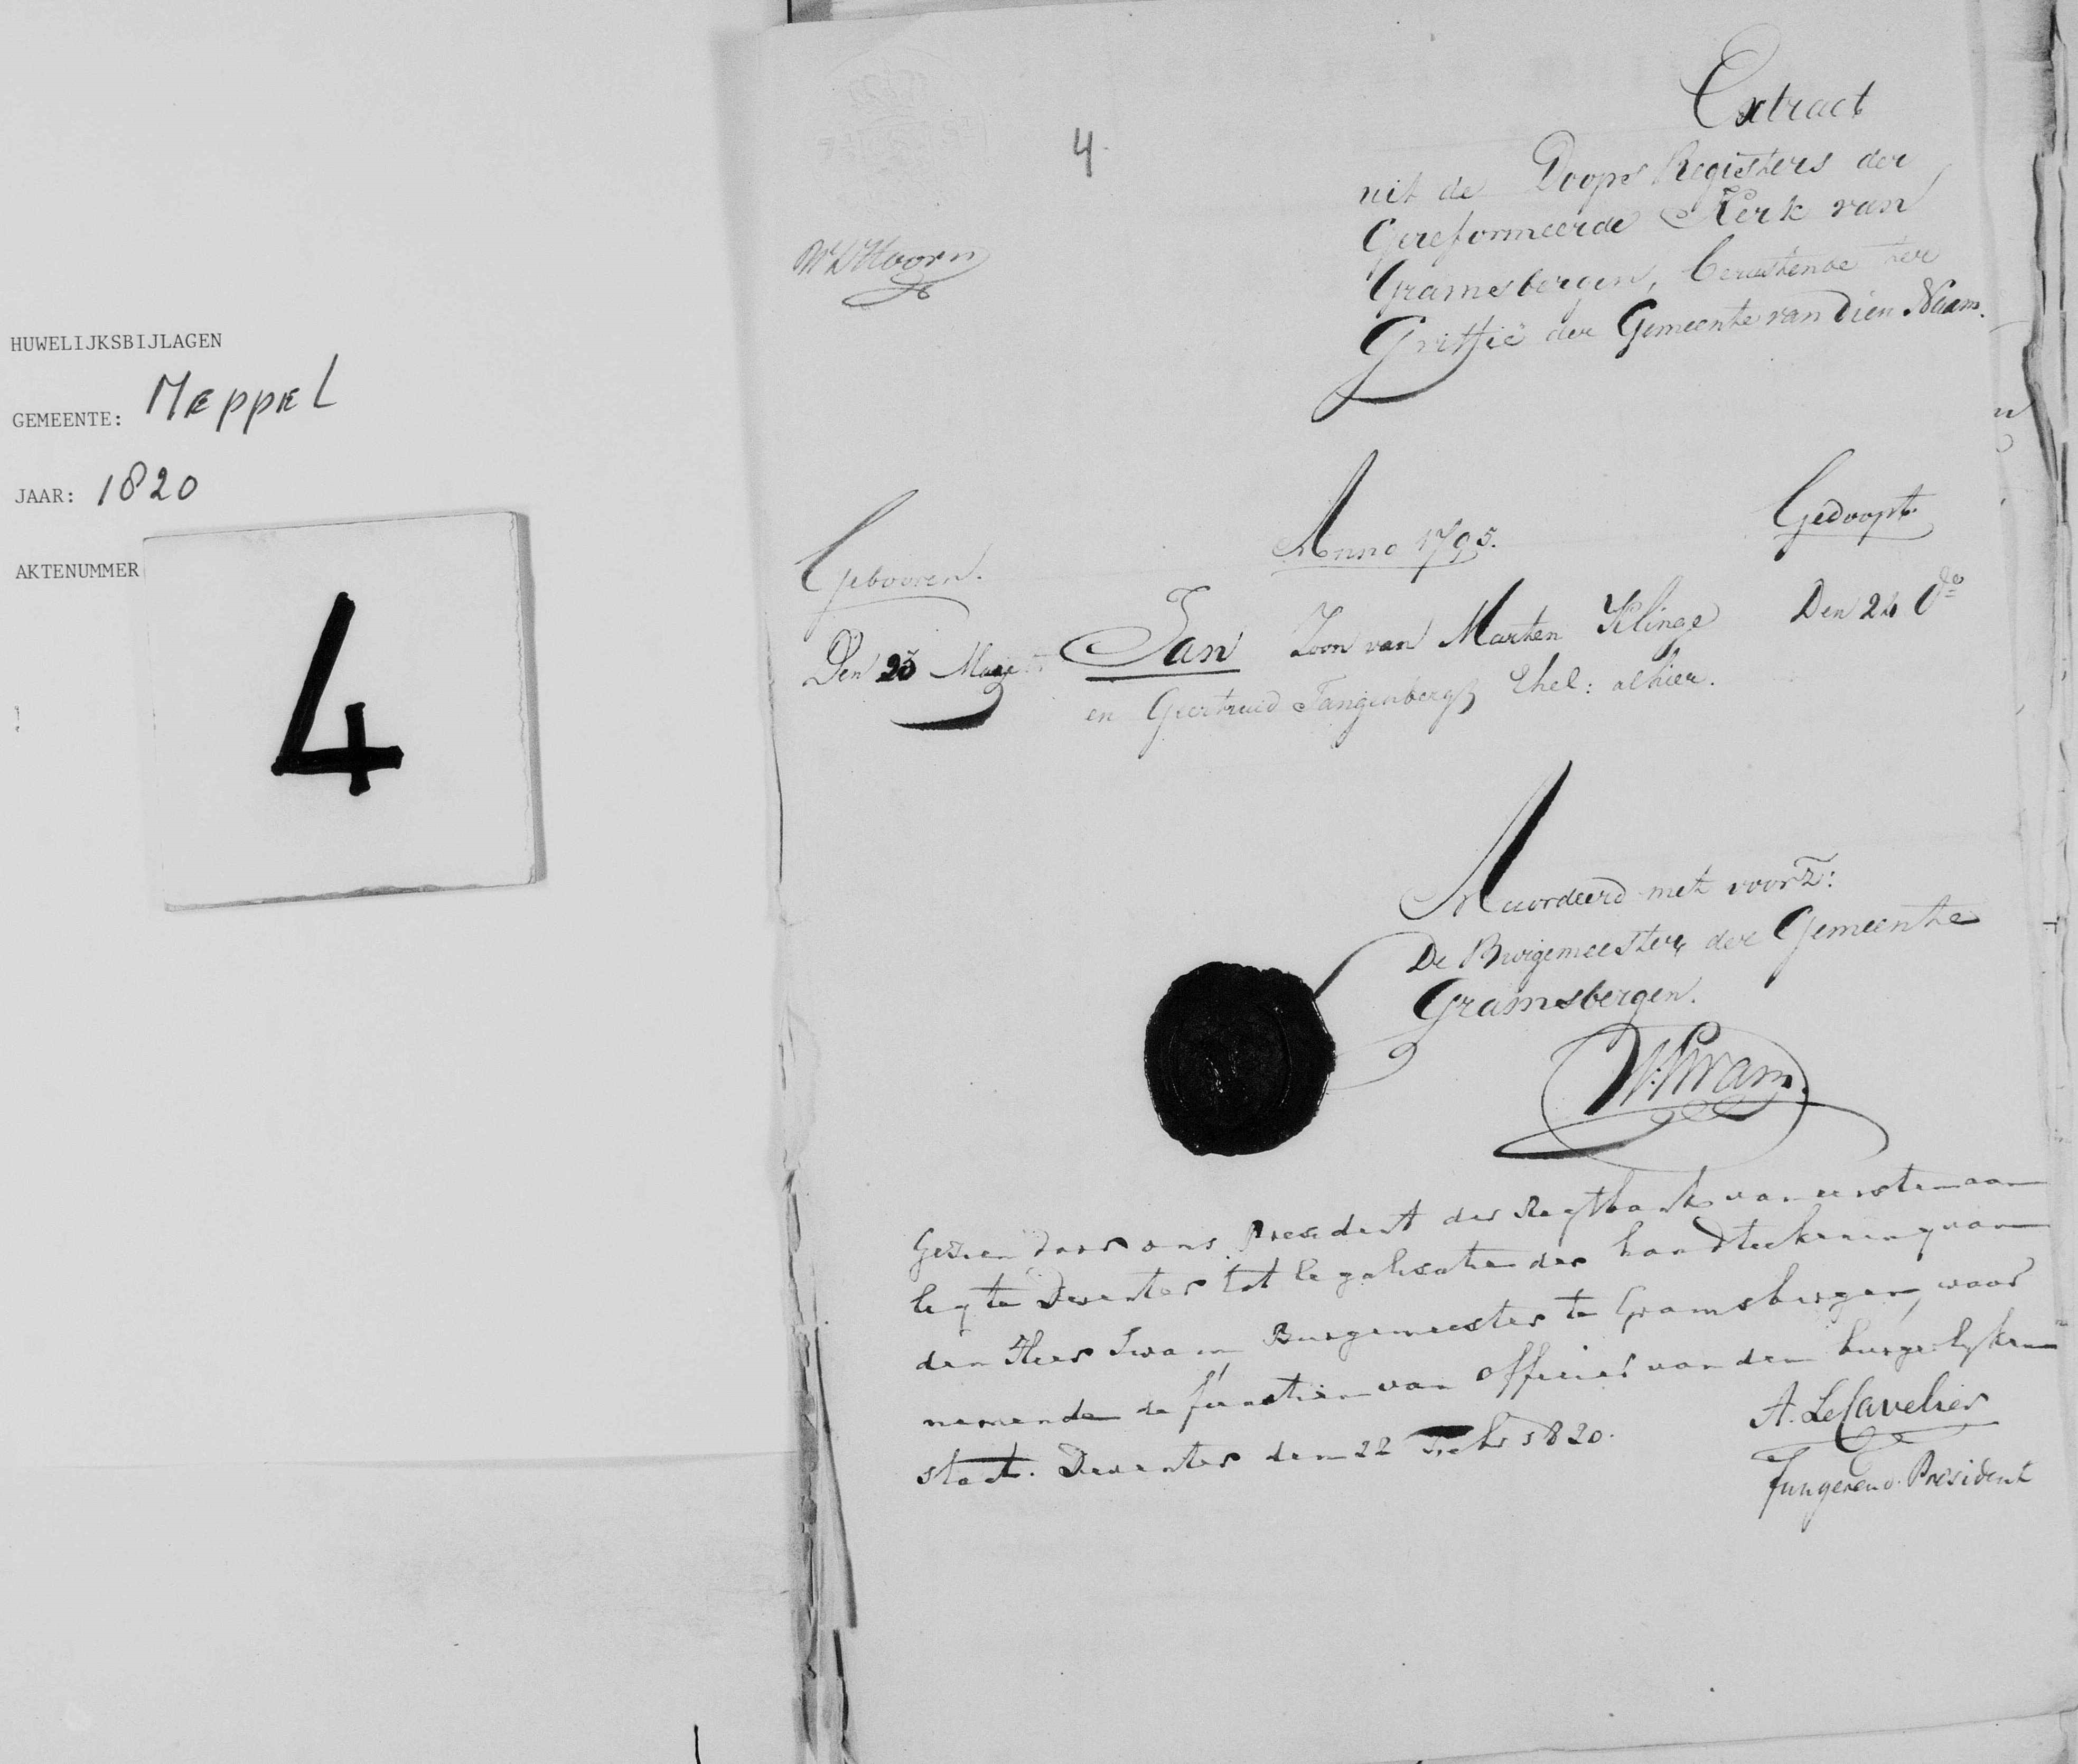 HUWELIJKSBIJLAGEN
GEMEENTE: MEPPEL
JAAR: 1820
AKTENUMMER
4
4
Extract
uit de Doops Registers der
Gereformeerde Kerk van
Gramsbergen, berustende ter
Griffie der Gemeente van dien Naam.
Anno 1795.
Gebooren.
Gedoopt.
Den 23 Maart
Jan Zoon van Marten Klinge
en Geertruid Tangenberg Ehel: alhier.
Den 24 do
Accordeerd met voorz:
De Burgemeester der Gemeente
Gramsbergen.
Gezien door ons President der Regtbank van eersten aan
leg te Deventer tot legalisatie der handteekening van
den Heer Swam Burgemeester te Gramsbergen, waar
nemende de functien van officier van den burgerlyken
staat. Deventer den 22 Febr 1820.
A. Le Cavelier
Fungerend. President